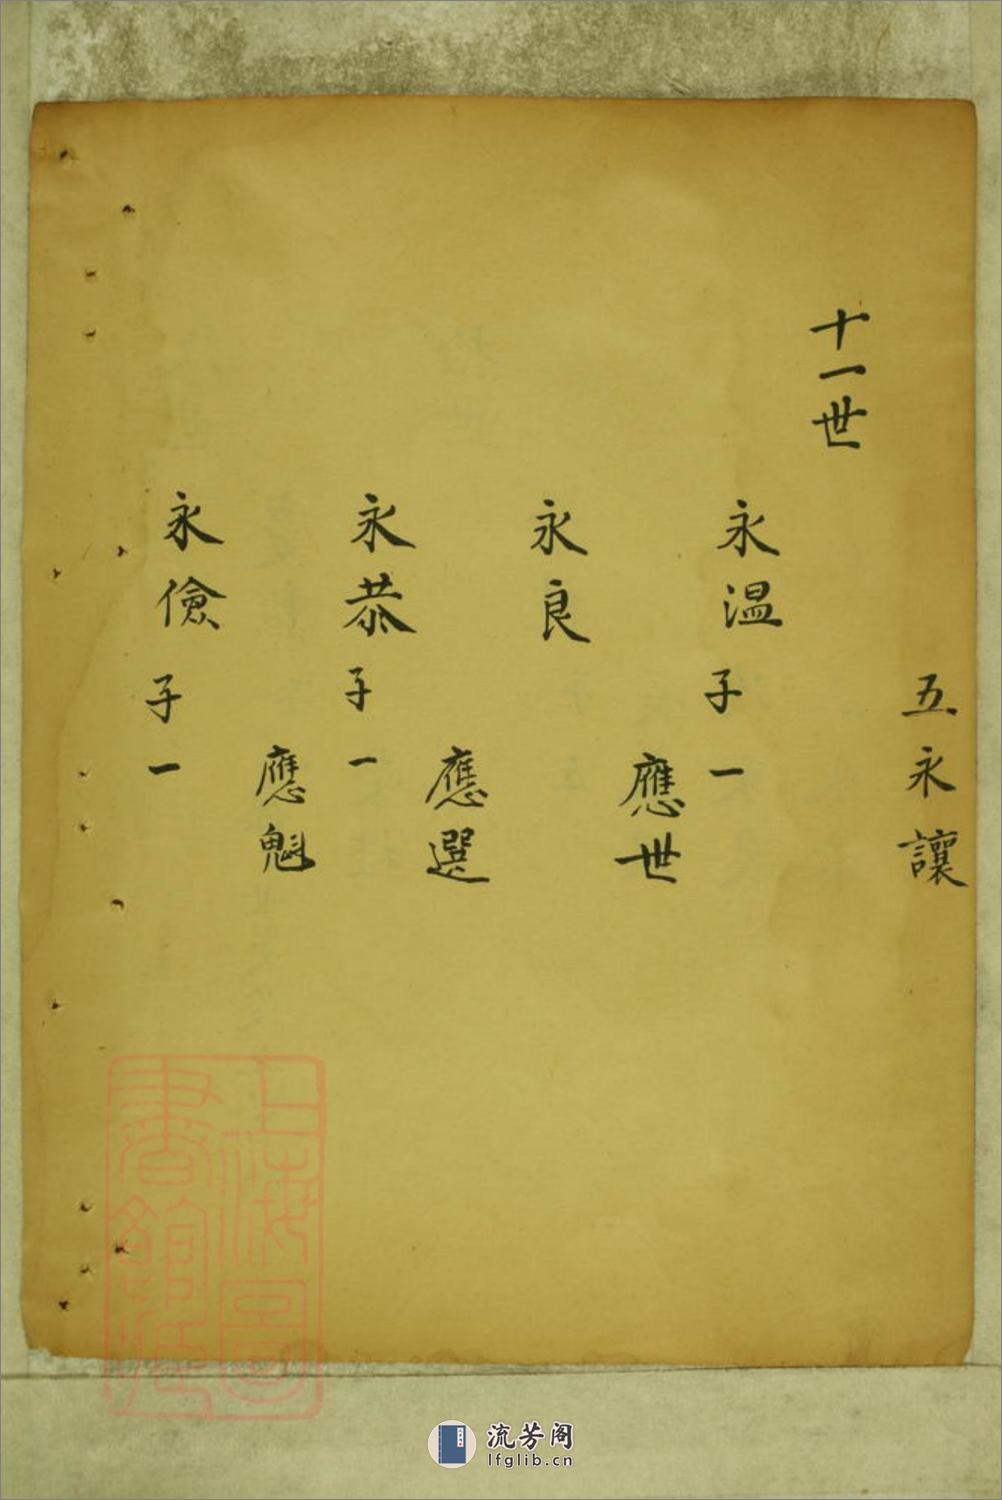 五永讓
十一世
永温子一
應世
永良
應選
永恭子一
應魁
永儉子一
上海圖
書館藏
流芳阁
lfglib.cn